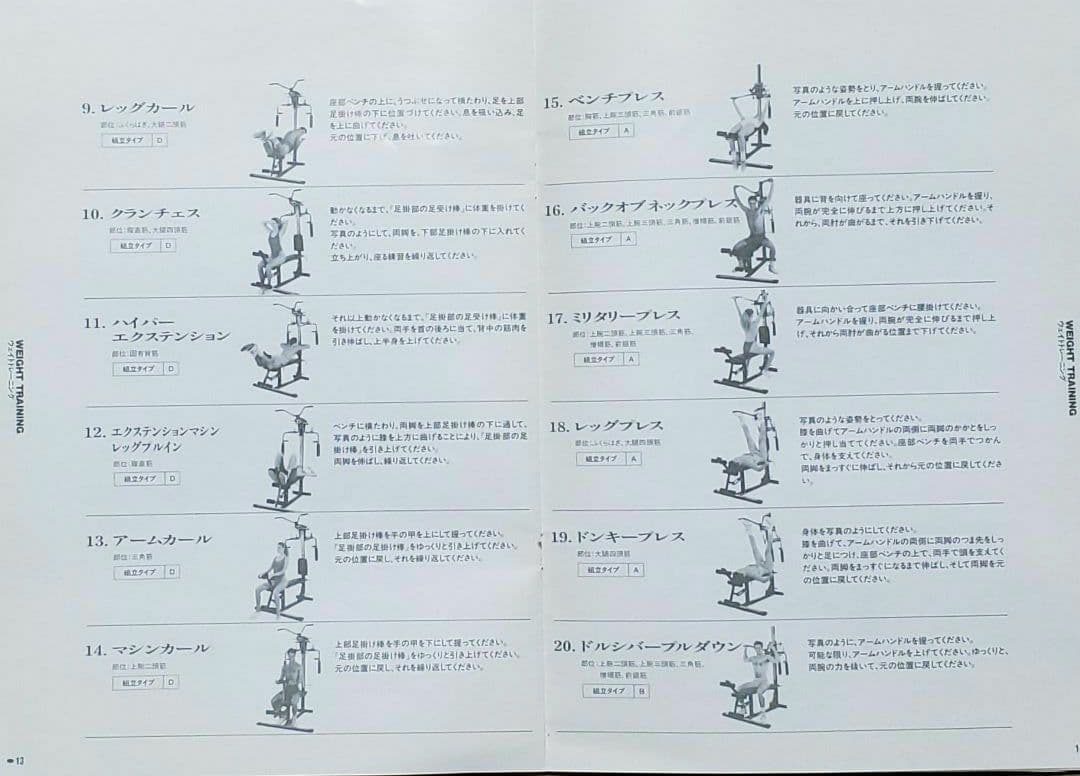 9. レッグカール
部位:ふくらはぎ、大腿二頭筋
組立タイプ D
座部ベンチの上に、うつぶせになって横たわり、足を上部
足掛け棒の下に位置づけてください。息を吸い込み、足
を上に曲げてください。
元の位置に下げ、息を吐いてください。
10. クランチェス
部位:腹直筋、大腿四頭筋
組立タイプ D
動かなくなるまで、「足掛部の足受け棒」に体重を掛けてく
ださい。
写真のようにして、両脚を、下部足掛け棒の下に入れてく
ださい。
立ち上がり、座る練習を繰り返してください。
11. ハイパー
エクステンション
部位:固有背筋
組立タイプ D
それ以上動かなくなるまで、「足掛部の足受け棒」に体重
を掛けてください。両手を首の後ろに当て、背中の筋肉を
引き伸ばし、上半身を上げてください。
12. エクステンションマシン
レッグプルイン
部位:腹直筋
組立タイプ D
ベンチに横たわり、両脚を上部足掛け棒の下に通して、
写真のように膝を上方に曲げることにより、「足掛部の足
掛け棒」を引き上げてください。
両脚を伸ばし、繰り返してください。
13. アームカール
部位:三角筋
組立タイプ D
上部足掛け棒を手の甲を上にして握ってください。
「足掛部の足掛け棒」をゆっくりと引き上げてください。
元の位置に戻し、それを繰り返してください。
14. マシンカール
部位:上腕二頭筋
組立タイプ D
上部足掛け棒を手の甲を下にして握ってください。
「足掛部の足掛け棒」をゆっくりと引き上げてください。
元の位置に戻し、それを繰り返してください。
WEIGHT TRAINING
ウェイトトレーニング
13
15. ベンチプレス
部位:胸筋、上腕三頭筋、三角筋、前鋸筋
組立タイプ A
写真のような姿勢をとり、アームハンドルを握ってください。
アームハンドルを上に押し上げ、両腕を伸ばしてください。
元の位置に戻してください。
16. バックオブネックプレス
部位:上腕二頭筋、上腕三頭筋、三角筋、僧帽筋、前鋸筋
組立タイプ A
器具に背を向けて座ってください。アームハンドルを握り、
両腕が完全に伸びるまで上方に押し上げてください。そ
れから、両肘が曲がるまで、それを引き下げてください。
17. ミリタリープレス
部位:上腕二頭筋、上腕三頭筋、三角筋、
僧帽筋、前鋸筋
組立タイプ A
器具に向かい合って座部ベンチに腰掛けてください。
アームハンドルを握り、両腕が完全に伸びるまで押し上
げ、それから両肘が曲がる位置まで下げてください。
18. レッグプレス
部位:ふくらはぎ、大腿四頭筋
組立タイプ A
写真のような姿勢をとってください。
膝を曲げてアームハンドルの両側に両脚のかかとをしっ
かりと押し当ててください。座部ベンチを両手でつかん
で、身体を支えてください。
両脚をまっすぐに伸ばし、それから元の位置に戻してくださ
い。
19. ドンキープレス
部位:大腿四頭筋
組立タイプ A
身体を写真のようにしてください。
膝を曲げて、アームハンドルの両側に両脚のつま先をしっ
かりと足につけ、座部ベンチの上で、両手で頭を支えてく
ださい。両脚をまっすぐになるまで伸ばし、そして両脚を元
の位置に戻してください。
20. ドルシバープルダウン
部位:上腕二頭筋、上腕三頭筋、三角筋、
僧帽筋、前鋸筋
組立タイプ B
写真のように、アームハンドルを握ってください。
可能な限り、アームハンドルを上げてください。ゆっくりと、
両腕の力を抜いて、元の位置に戻してください。
WEIGHT TRAINING
ウェイトトレーニング